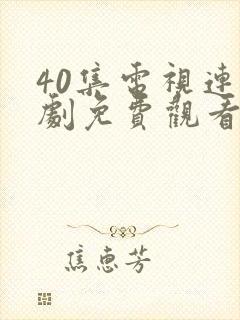 40集電視連
劇免費觀看
焦惠芳